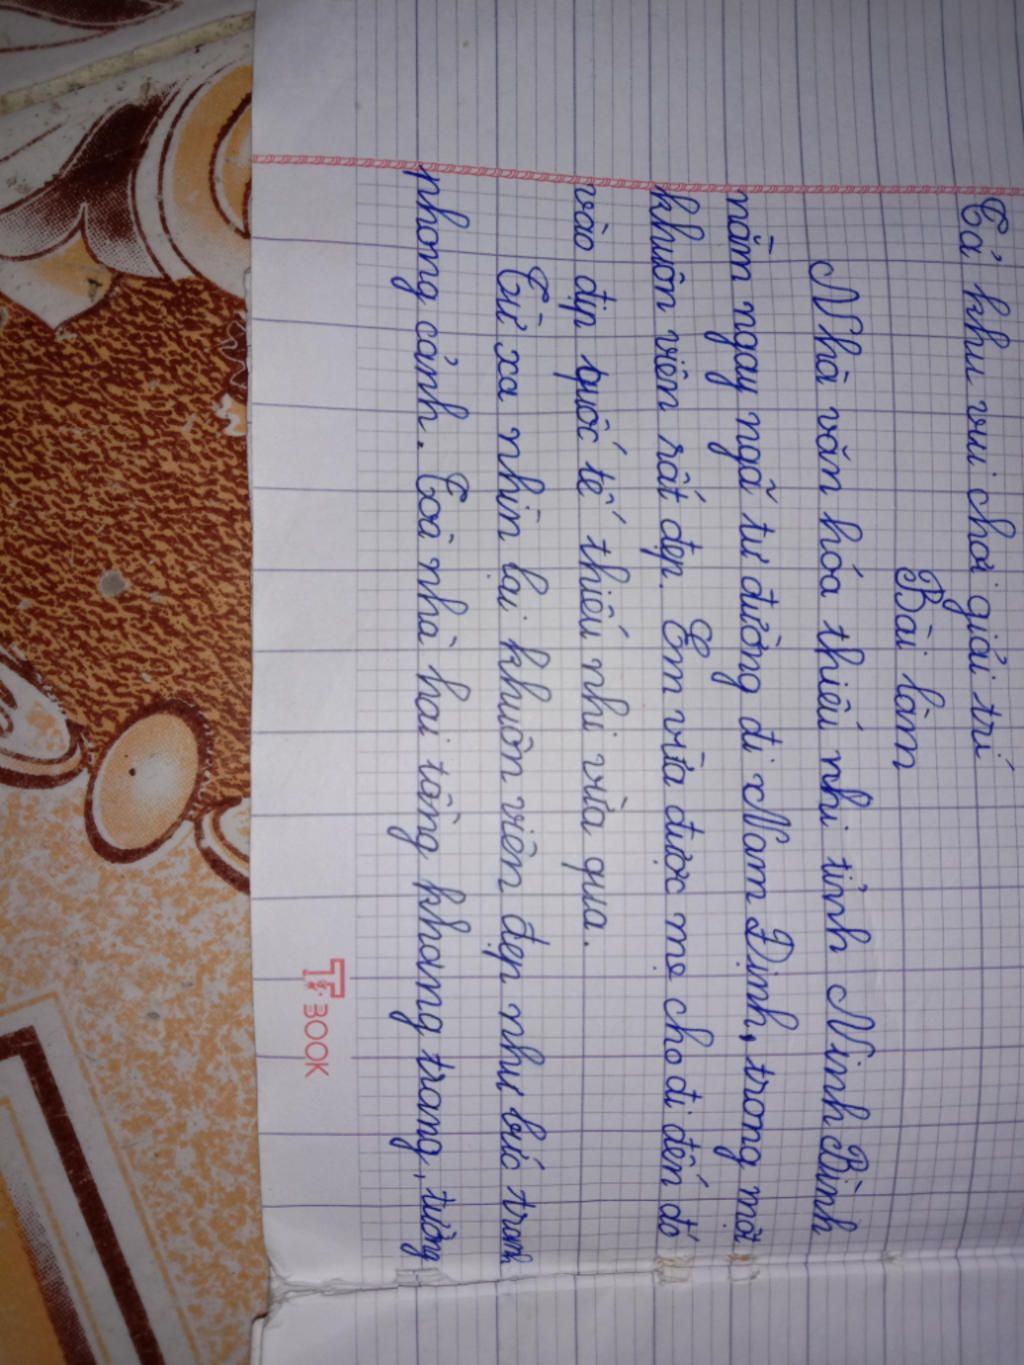 Tả khu vui chơi giải trí
Bài làm
Nhà văn hóa thiếu nhi tỉnh Ninh Bình
nằm ngay ngã tư đường đi Nam Định, trong một
khuôn viên rất đẹp. Em vừa được mẹ cho đi đến đó
vào dịp quốc tế thiếu nhi vừa qua.
Từ xa nhìn lại khuôn viên đẹp như bức tranh
phong cảnh. Toà nhà hai tầng khang trang, tường
BOOK